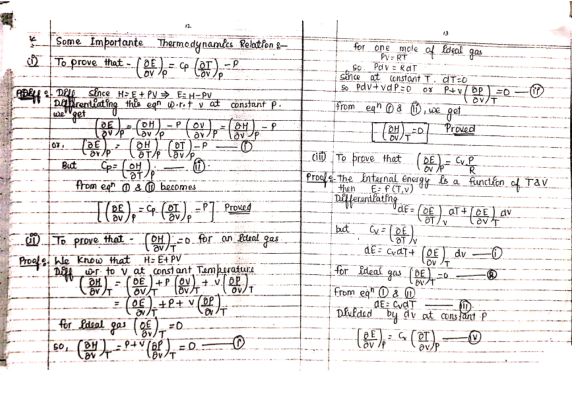 12
* Some Importante Thermodynamics Relations:-
(i) To prove that - (∂E/∂V)P = Cp (∂T/∂V)P - P
Proof:- Diff since H = E + PV ⇒ E = H-PV
Differentiating this eqn w.r.t v at constant P.
we get
(∂E/∂V)P = (∂H/∂V)P - P (∂V/∂V)P = (∂H/∂V)P - P
or, (∂E/∂V)P = (∂H/∂T)P (∂T/∂V)P - P — (i)
But Cp = (∂H/∂T)P — (ii)
from eqn (i) & (ii) becomes
[(∂E/∂V)P = Cp (∂T/∂V)P - P] Proved
(ii) To prove that - (∂H/∂V)T = 0. for an Ideal gas
Proof:- We know that H = E+PV
Diff wr to V at constant Temperature
(∂H/∂V)T = (∂E/∂V)T + P (∂V/∂V)T + V (∂P/∂V)T
= (∂E/∂V)T + P + V (∂P/∂V)T
for Ideal gas (∂E/∂V)T = 0
so, (∂H/∂V)T = P + V (∂P/∂V)T = 0. — (i)
13
for one mole of Ideal gas
PV = RT
so Pdv = RdT
since at constant T. dT=0
so Pdv + vdP = 0 or P + v (∂P/∂V)T = 0 — (ii)
from eqn (i) & (ii), we get
[(∂H/∂V)T = 0] Proved
(iii) To prove that (∂E/∂V)P = Cv.P/R
Proof:- The Internal energy is a function of T & V
then E = f (T,V)
Differentiating
dE = (∂E/∂T)V dT + (∂E/∂V)T dv
but Cv = (∂E/∂T)V
dE = CvdT + (∂E/∂V)T dv — (i)
for Ideal gas (∂E/∂V)T = 0 — (ii)
from eqn (i) & (ii)
dE = CvdT — (iii)
Divided by dv at constant P
(∂E/∂V)P = Cv (∂T/∂V)P — (iv)